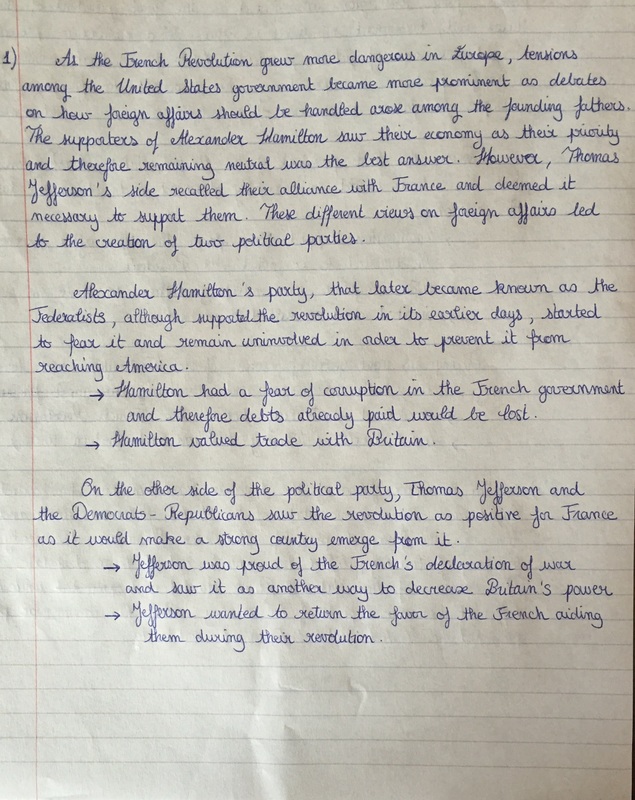 1) As the French Revolution grew more dangerous in Europe, tensions
among the United States government became more prominent as debates
on how foreign affairs should be handled arose among the founding fathers.
The supporters of Alexander Hamilton saw their economy as their priority
and therefore remaining neutral was the best answer. However, Thomas
Jefferson's side recalled their alliance with France and deemed it
necessary to support them. These different views on foreign affairs led
to the creation of two political parties.
Alexander Hamilton's party, that later became known as the
Federalists, although supported the revolution in its earlier days, started
to fear it and remain uninvolved in order to prevent it from
reaching America.
→ Hamilton had a fear of corruption in the French government
and therefore debts already paid would be lost.
→ Hamilton valued trade with Britain.
On the other side of the political party, Thomas Jefferson and
the Democrats-Republicans saw the revolution as positive for France
as it would make a strong country emerge from it.
→ Jefferson was proud of the French's declaration of war
and saw it as another way to decrease Britain's power
→ Jefferson wanted to return the favor of the French aiding
them during their revolution.